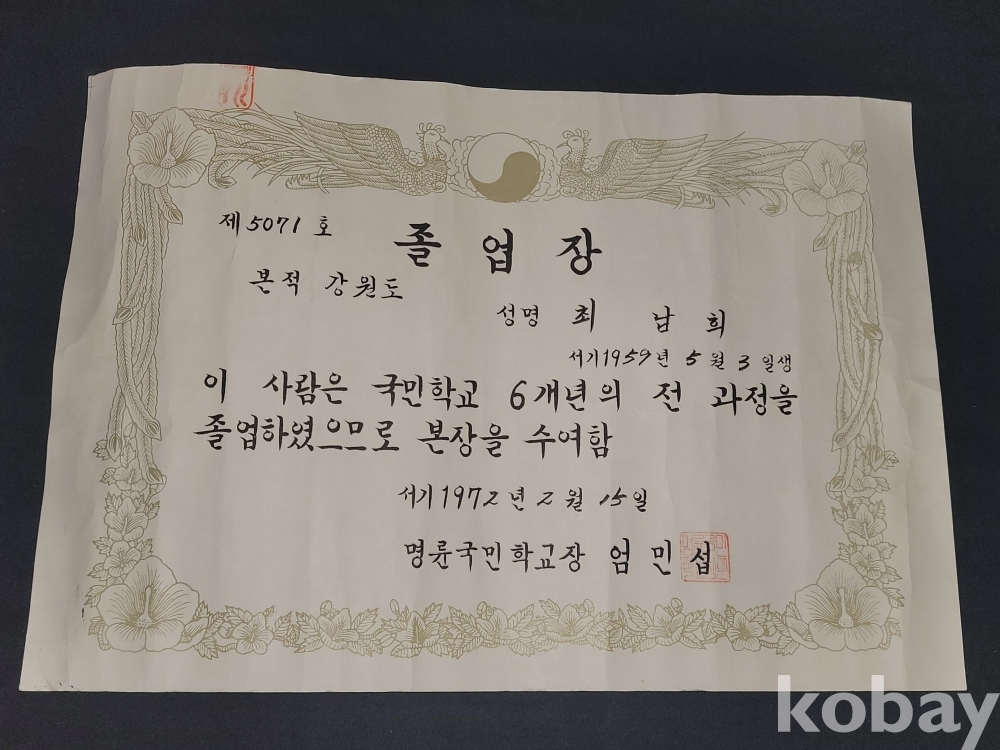 제 5071 호
졸업장
본적 강원도
성명 최 남 희
서기 1959년 5월 3일생
이 사람은 국민학교 6개년의 전 과정을
졸업하였으므로 본장을 수여함
서기 1972년 2월 15일
명륜국민학교장 엄민섭
kobay